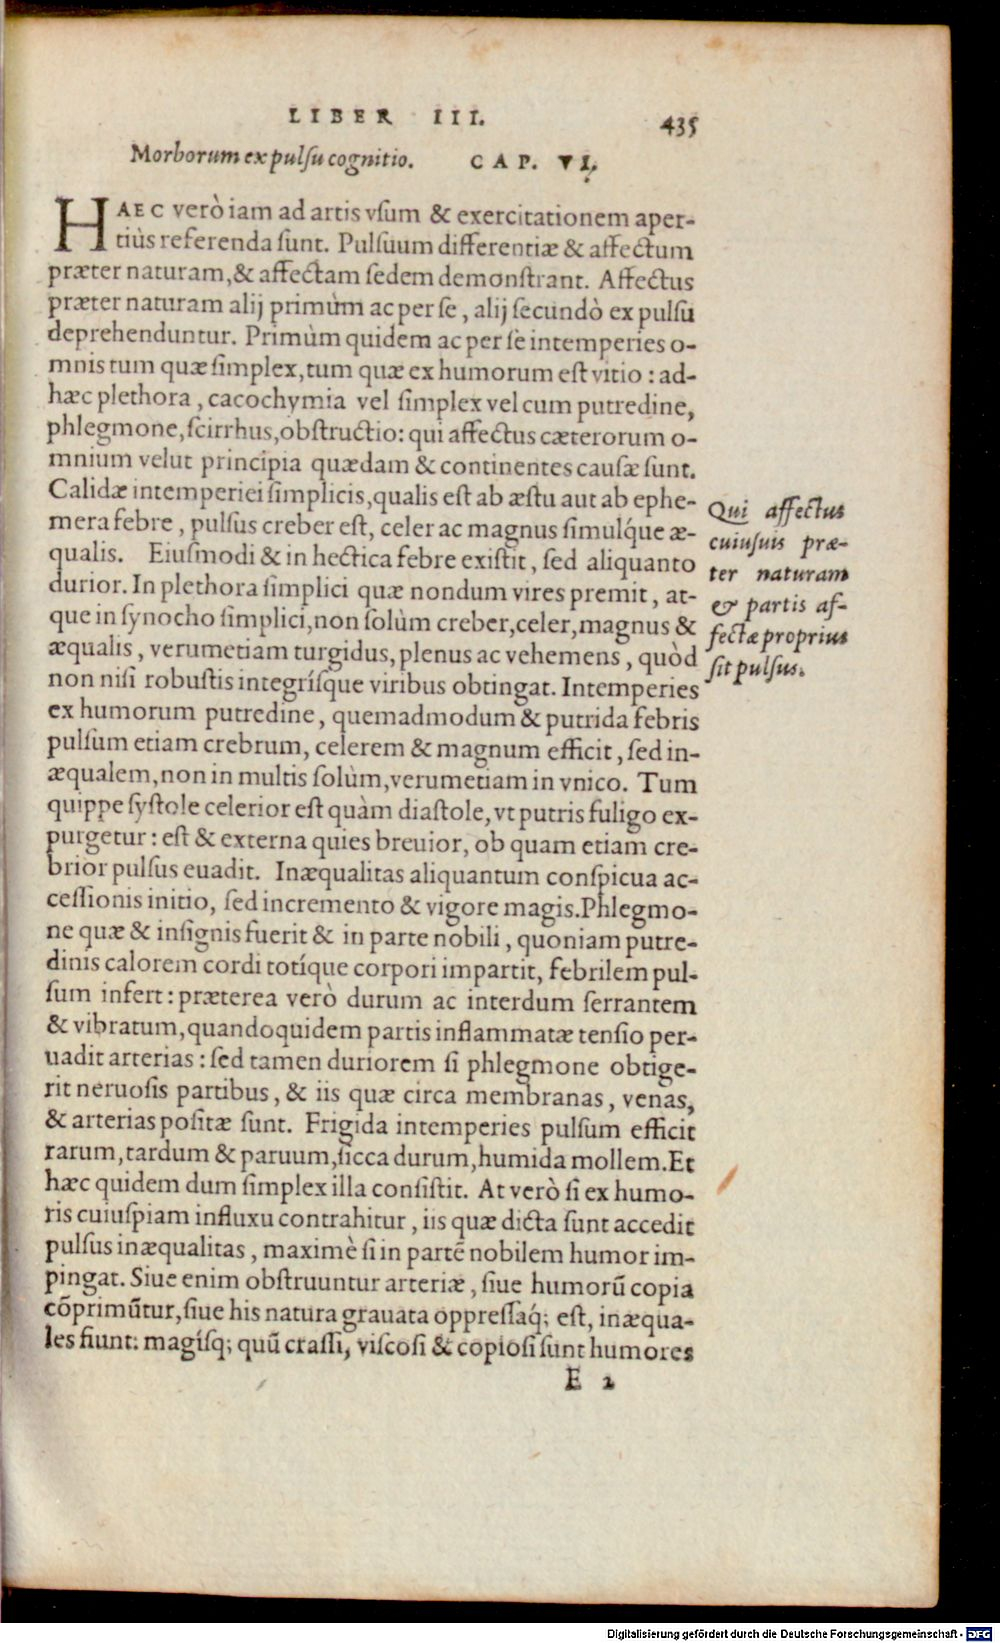 LIBER III. 435
Morborum ex pulſu cognitio. CAP. VI.
HAEC verò iam ad artis vſum & exercitationem aper-
tiùs referenda ſunt. Pulſuum differentiæ & affectum
præter naturam, & affectam ſedem demonſtrant. Affectus
præter naturam alij primùm ac per ſe, alij ſecundò ex pulſu
deprehenduntur. Primùm quidem ac per ſe intemperies o-
mnis tum quæ ſimplex, tum quæ ex humorum eſt vitio: ad-
hæc plethora, cacochymia vel ſimplex vel cum putredine,
phlegmone, ſcirrhus, obſtructio: qui affectus cæterorum o-
mnium velut principia quædam & continentes cauſæ ſunt.
Calidæ intemperiei ſimplicis, qualis eſt ab æſtu aut ab ephe-
mera febre, pulſus creber eſt, celer ac magnus ſimulq́ue æ-
qualis. Eiuſmodi & in hectica febre exiſtit, ſed aliquanto
durior. In plethora ſimplici quæ nondum vires premit, at-
que in ſynocho ſimplici, non ſolùm creber, celer, magnus &
æqualis, verumetiam turgidus, plenus ac vehemens, quòd
non niſi robuſtis integríſque viribus obtingat. Intemperies
ex humorum putredine, quemadmodum & putrida febris
pulſum etiam crebrum, celerem & magnum efficit, ſed in-
æqualem, non in multis ſolùm, verumetiam in vnico. Tum
quippe ſyſtole celerior eſt quàm diaſtole, vt putris fuligo ex-
purgetur: eſt & externa quies breuior, ob quam etiam cre-
brior pulſus euadit. Inæqualitas aliquantum conſpicua ac-
ceſſionis initio, ſed incremento & vigore magis. Phlegmo-
ne quæ & inſignis fuerit & in parte nobili, quoniam putre-
dinis calorem cordi totíque corpori impartit, febrilem pul-
ſum infert: præterea verò durum ac interdum ſerrantem
& vibratum, quandoquidem partis inflammatæ tenſio per-
uadit arterias: ſed tamen duriorem ſi phlegmone obtige-
rit neruoſis partibus, & iis quæ circa membranas, venas,
& arterias poſitæ ſunt. Frigida intemperies pulſum efficit
rarum, tardum & paruum, ſicca durum, humida mollem. Et
hæc quidem dum ſimplex illa conſiſtit. At verò ſi ex humo-
ris cuiuſpiam influxu contrahitur, iis quæ dicta ſunt accedit
pulſus inæqualitas, maximè ſi in partē nobilem humor im-
pingat. Siue enim obſtruuntur arteriæ, ſiue humorū copia
cōprimūtur, ſiue his natura grauata oppreſſaq́; eſt, inæqua-
les fiunt: magíſq; quū craſſi, viſcoſi & copioſi ſunt humores
E 2
Qui affectus
cuiuſuis præ-
ter naturam
& partis af-
fectæ proprius
ſit pulſus.
Digitalisierung gefördert durch die Deutsche Forschungsgemeinschaft - DFG